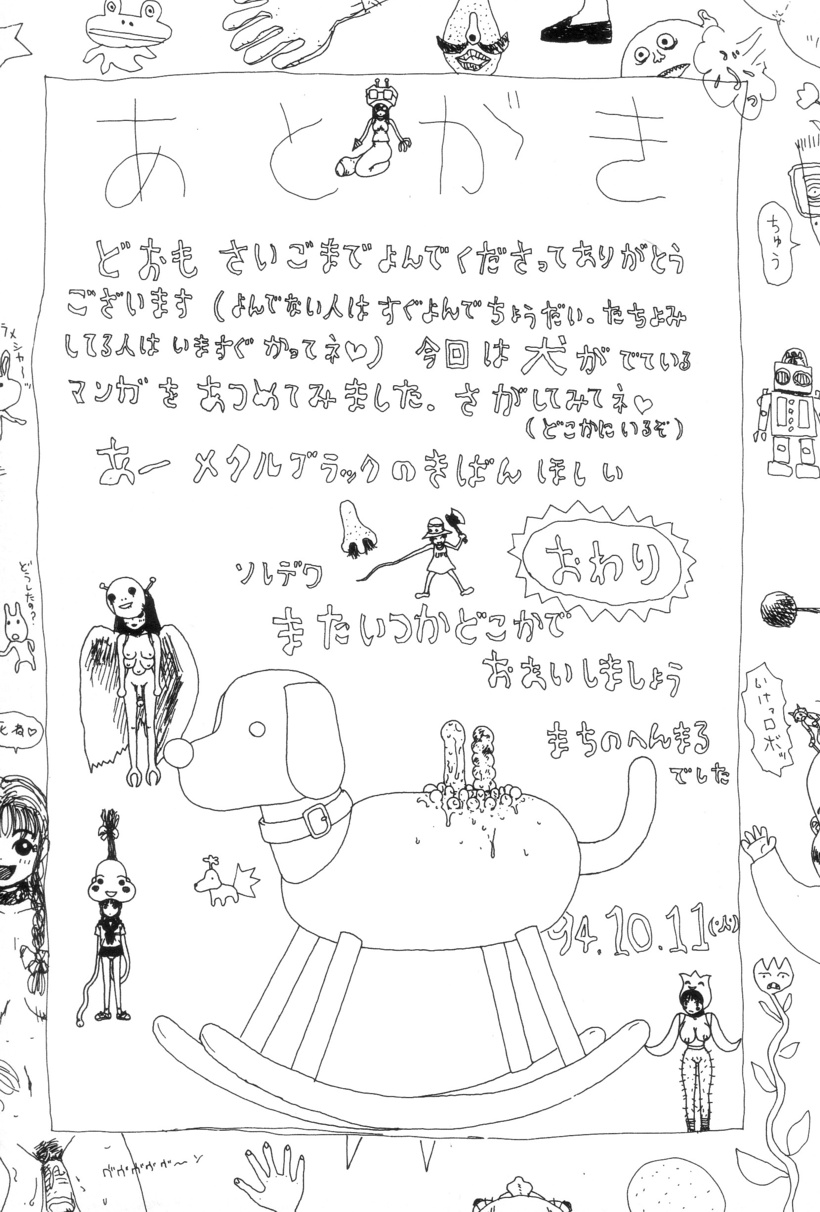 あとがき
どおも さいごまでよんでくださってありがとう
ございます (よんでない人は すぐよんでちょうだい。たちよみ
してる人は いますぐ かってネ♡) 今回は犬がでている
マンガを あつめてみました。さがしてみてネ♡
(どこかにいるぞ)
あー メタルブラックのきばん ほしい
おわり
ソレデワ
またいつかどこかで
おあいしましょう
まちのへんまる
でした
94.10.11(火)
ちゅう
どうしたの?
いけッロボッ
死ね♡
ヴヴヴヴヴ〜ン